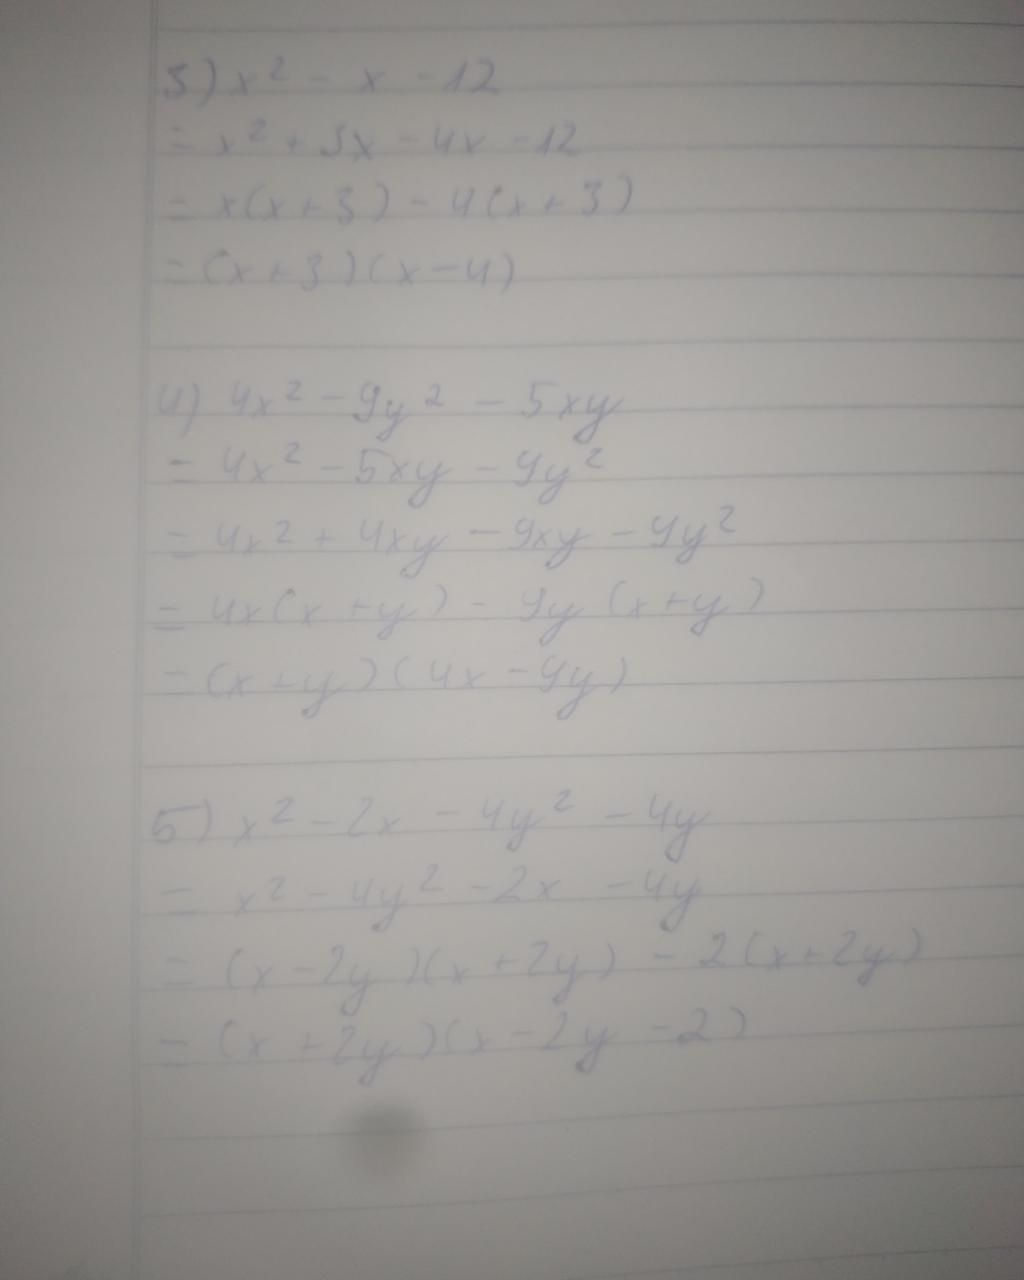 3) x² - x - 12
= x² + 3x - 4x - 12
= x(x + 3) - 4(x + 3)
= (x + 3)(x - 4)
4) 4x² - 9y² - 5xy
= 4x² - 5xy - 9y²
= 4x² + 4xy - 9xy - 9y²
= 4x(x + y) - 9y(x + y)
= (x + y)(4x - 9y)
5) x² - 2x - 4y² - 4y
= x² - 4y² - 2x - 4y
= (x - 2y)(x + 2y) - 2(x + 2y)
= (x + 2y)(x - 2y - 2)